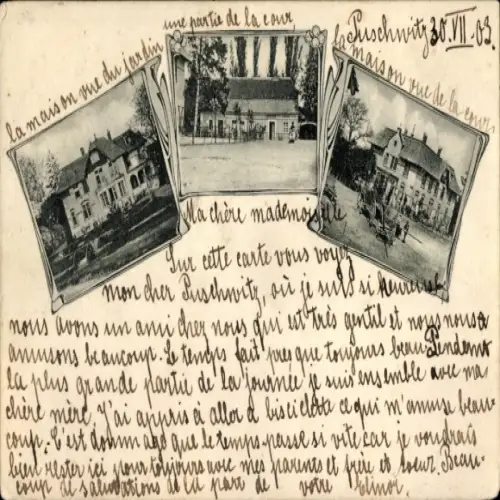 une partie de la cour
Puschwitz 30.VII.03.
la maison vue du jardin
la maison vue de la cour
Ma chère mademoiselle
Sur cette carte vous voyez
mon cher Puschwitz, où je suis si heureuse
nous avons un ami chez nous qui est très gentil et nous nous
amusons beaucoup. Le temps fait presque toujours beau Pendent
la plus grande partie de la journée je suis ensemble avec ma
chère mère. J'ai appris à aller à bisciclete ce qui m'amuse beau-
coup. C'est dommage que le temps passe si vite car je voudrais
bien rester ici pour toujours avec mes parents et frère et soeur. Beau-
coup de salutations de la part de votre Elinor.